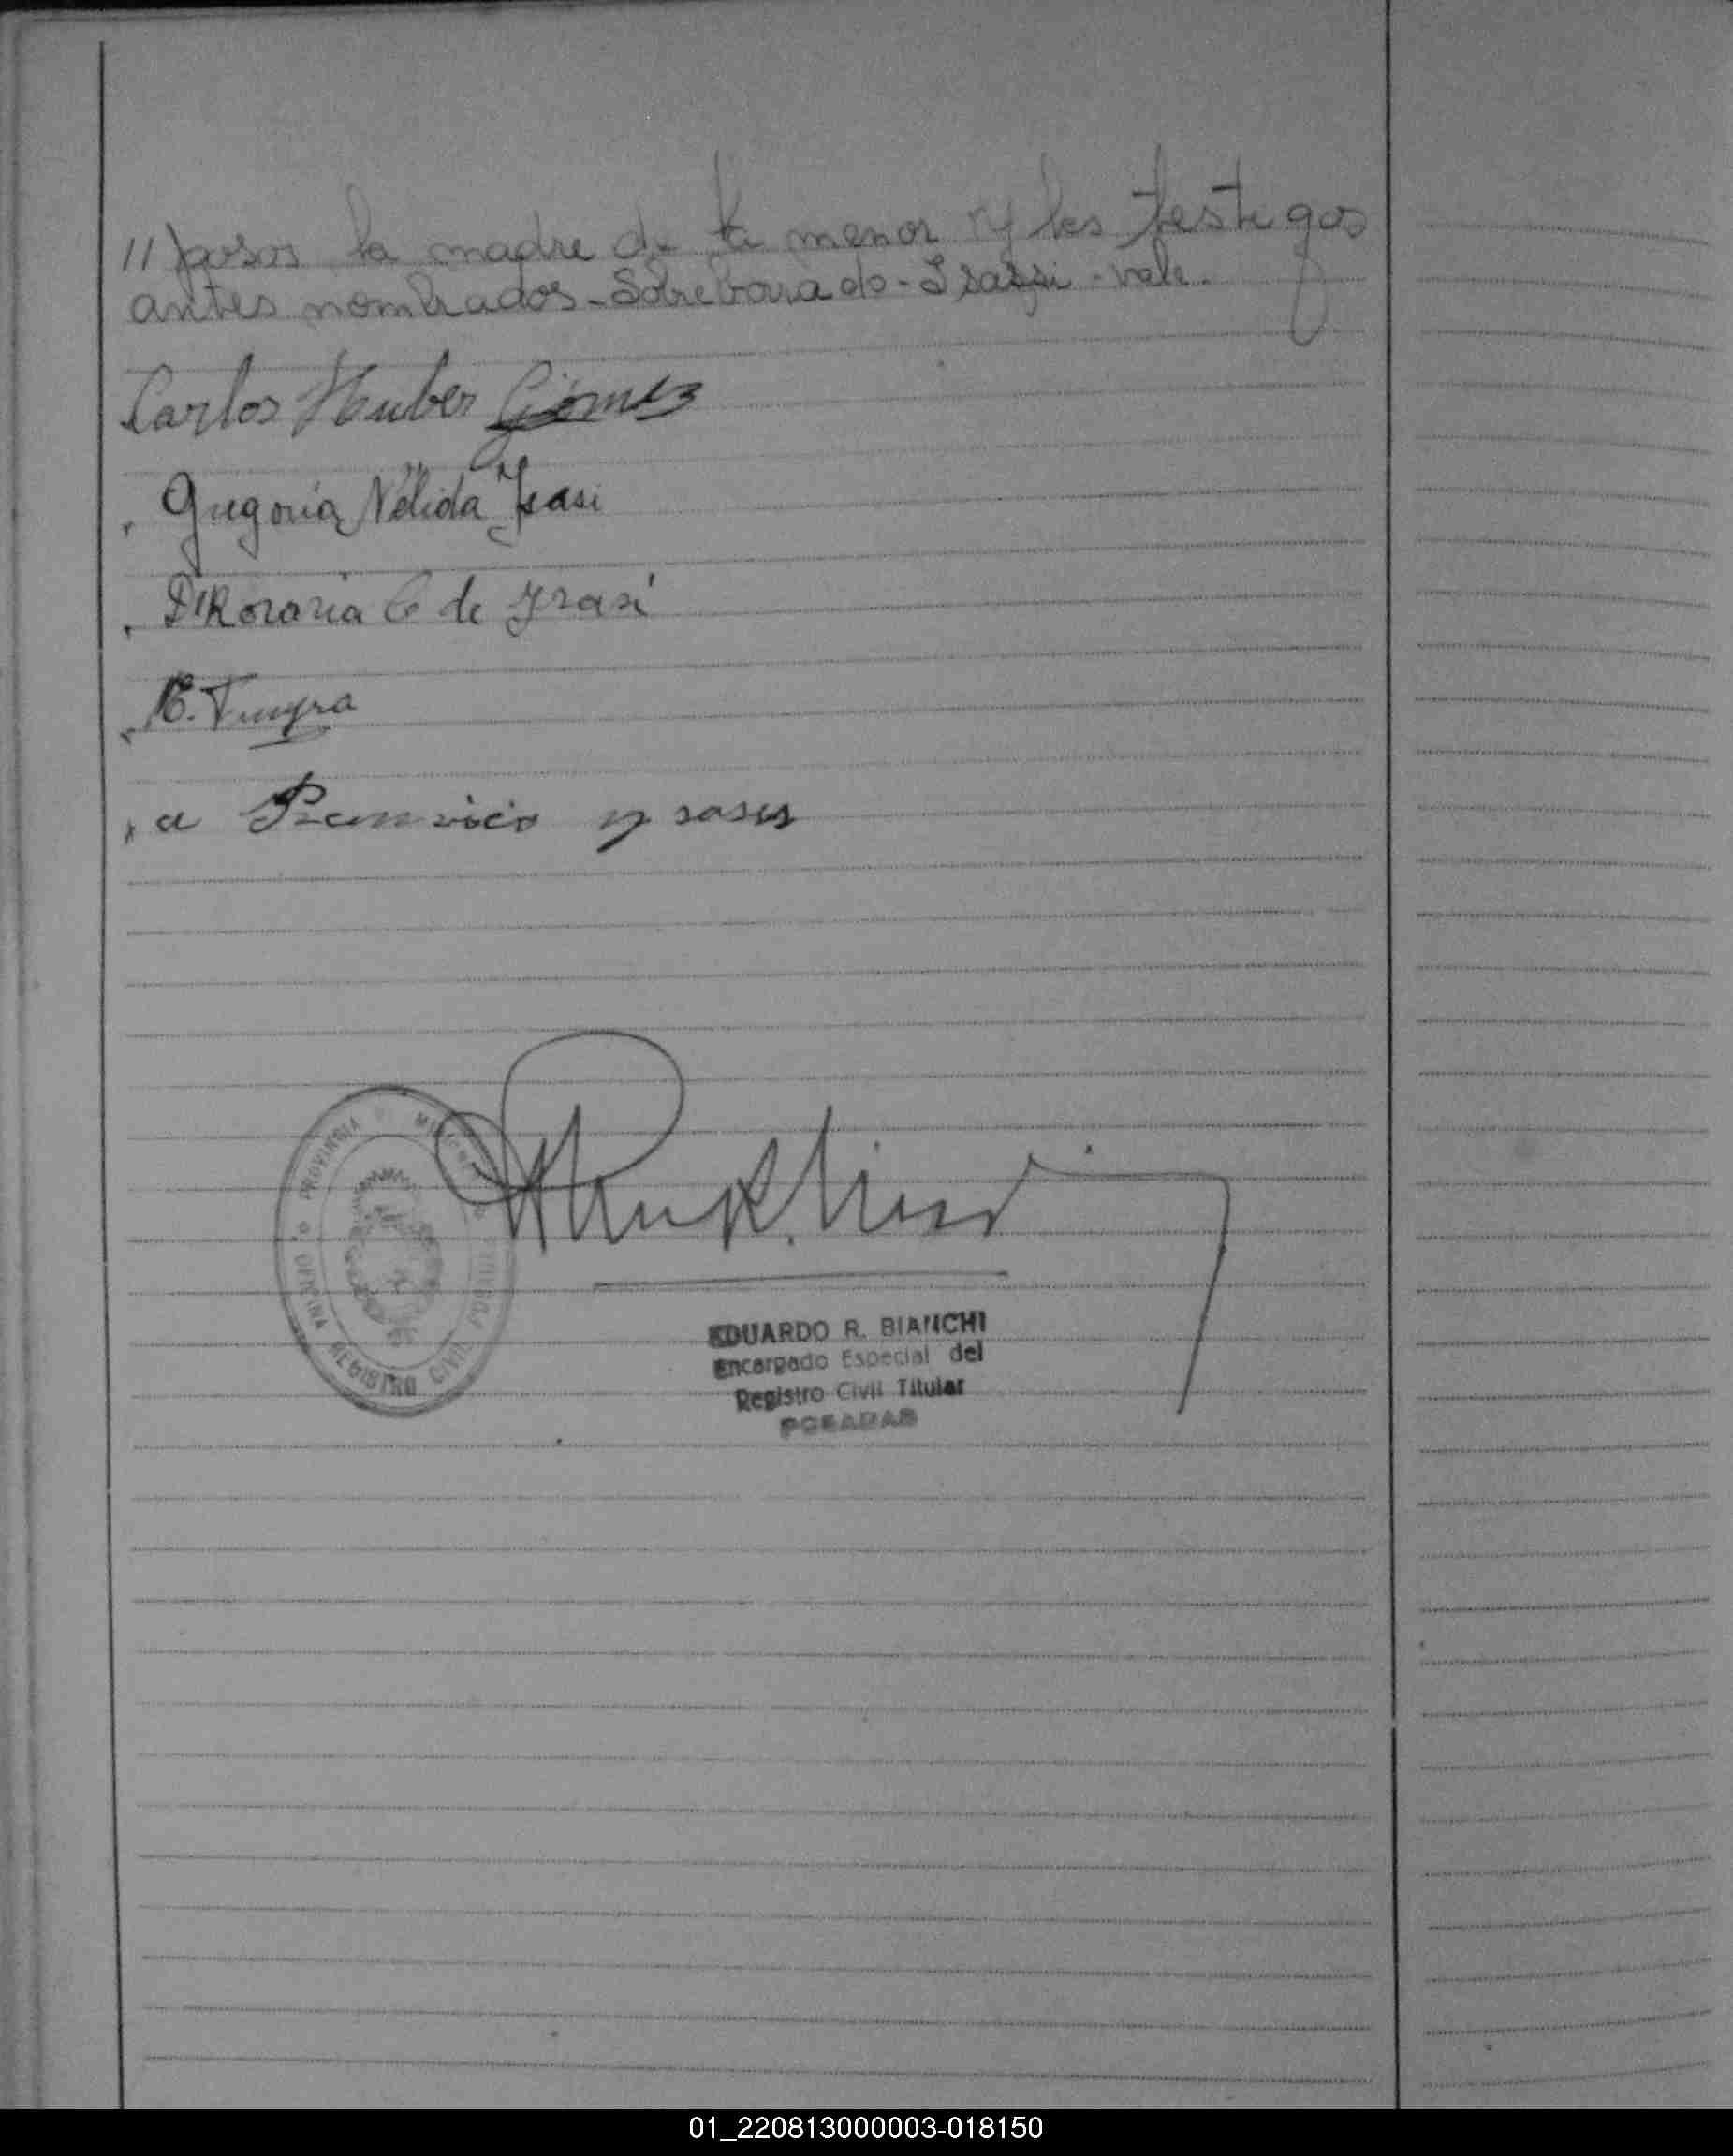 // posos la madre de la menor y los testigos
antes nombrados - Sobreborrado - Isassi - vale.
Carlos Huber Gómez
Gregoria Nélida Ysasi
Rosaria C de Ysasi
a ysasis
PROVINCIA MISIONES
OFICINA REGISTRO CIVIL POSADAS
EDUARDO R. BIANCHI
Encargado Especial del
Registro Civil Titular
POSADAS
01_220813000003-018150